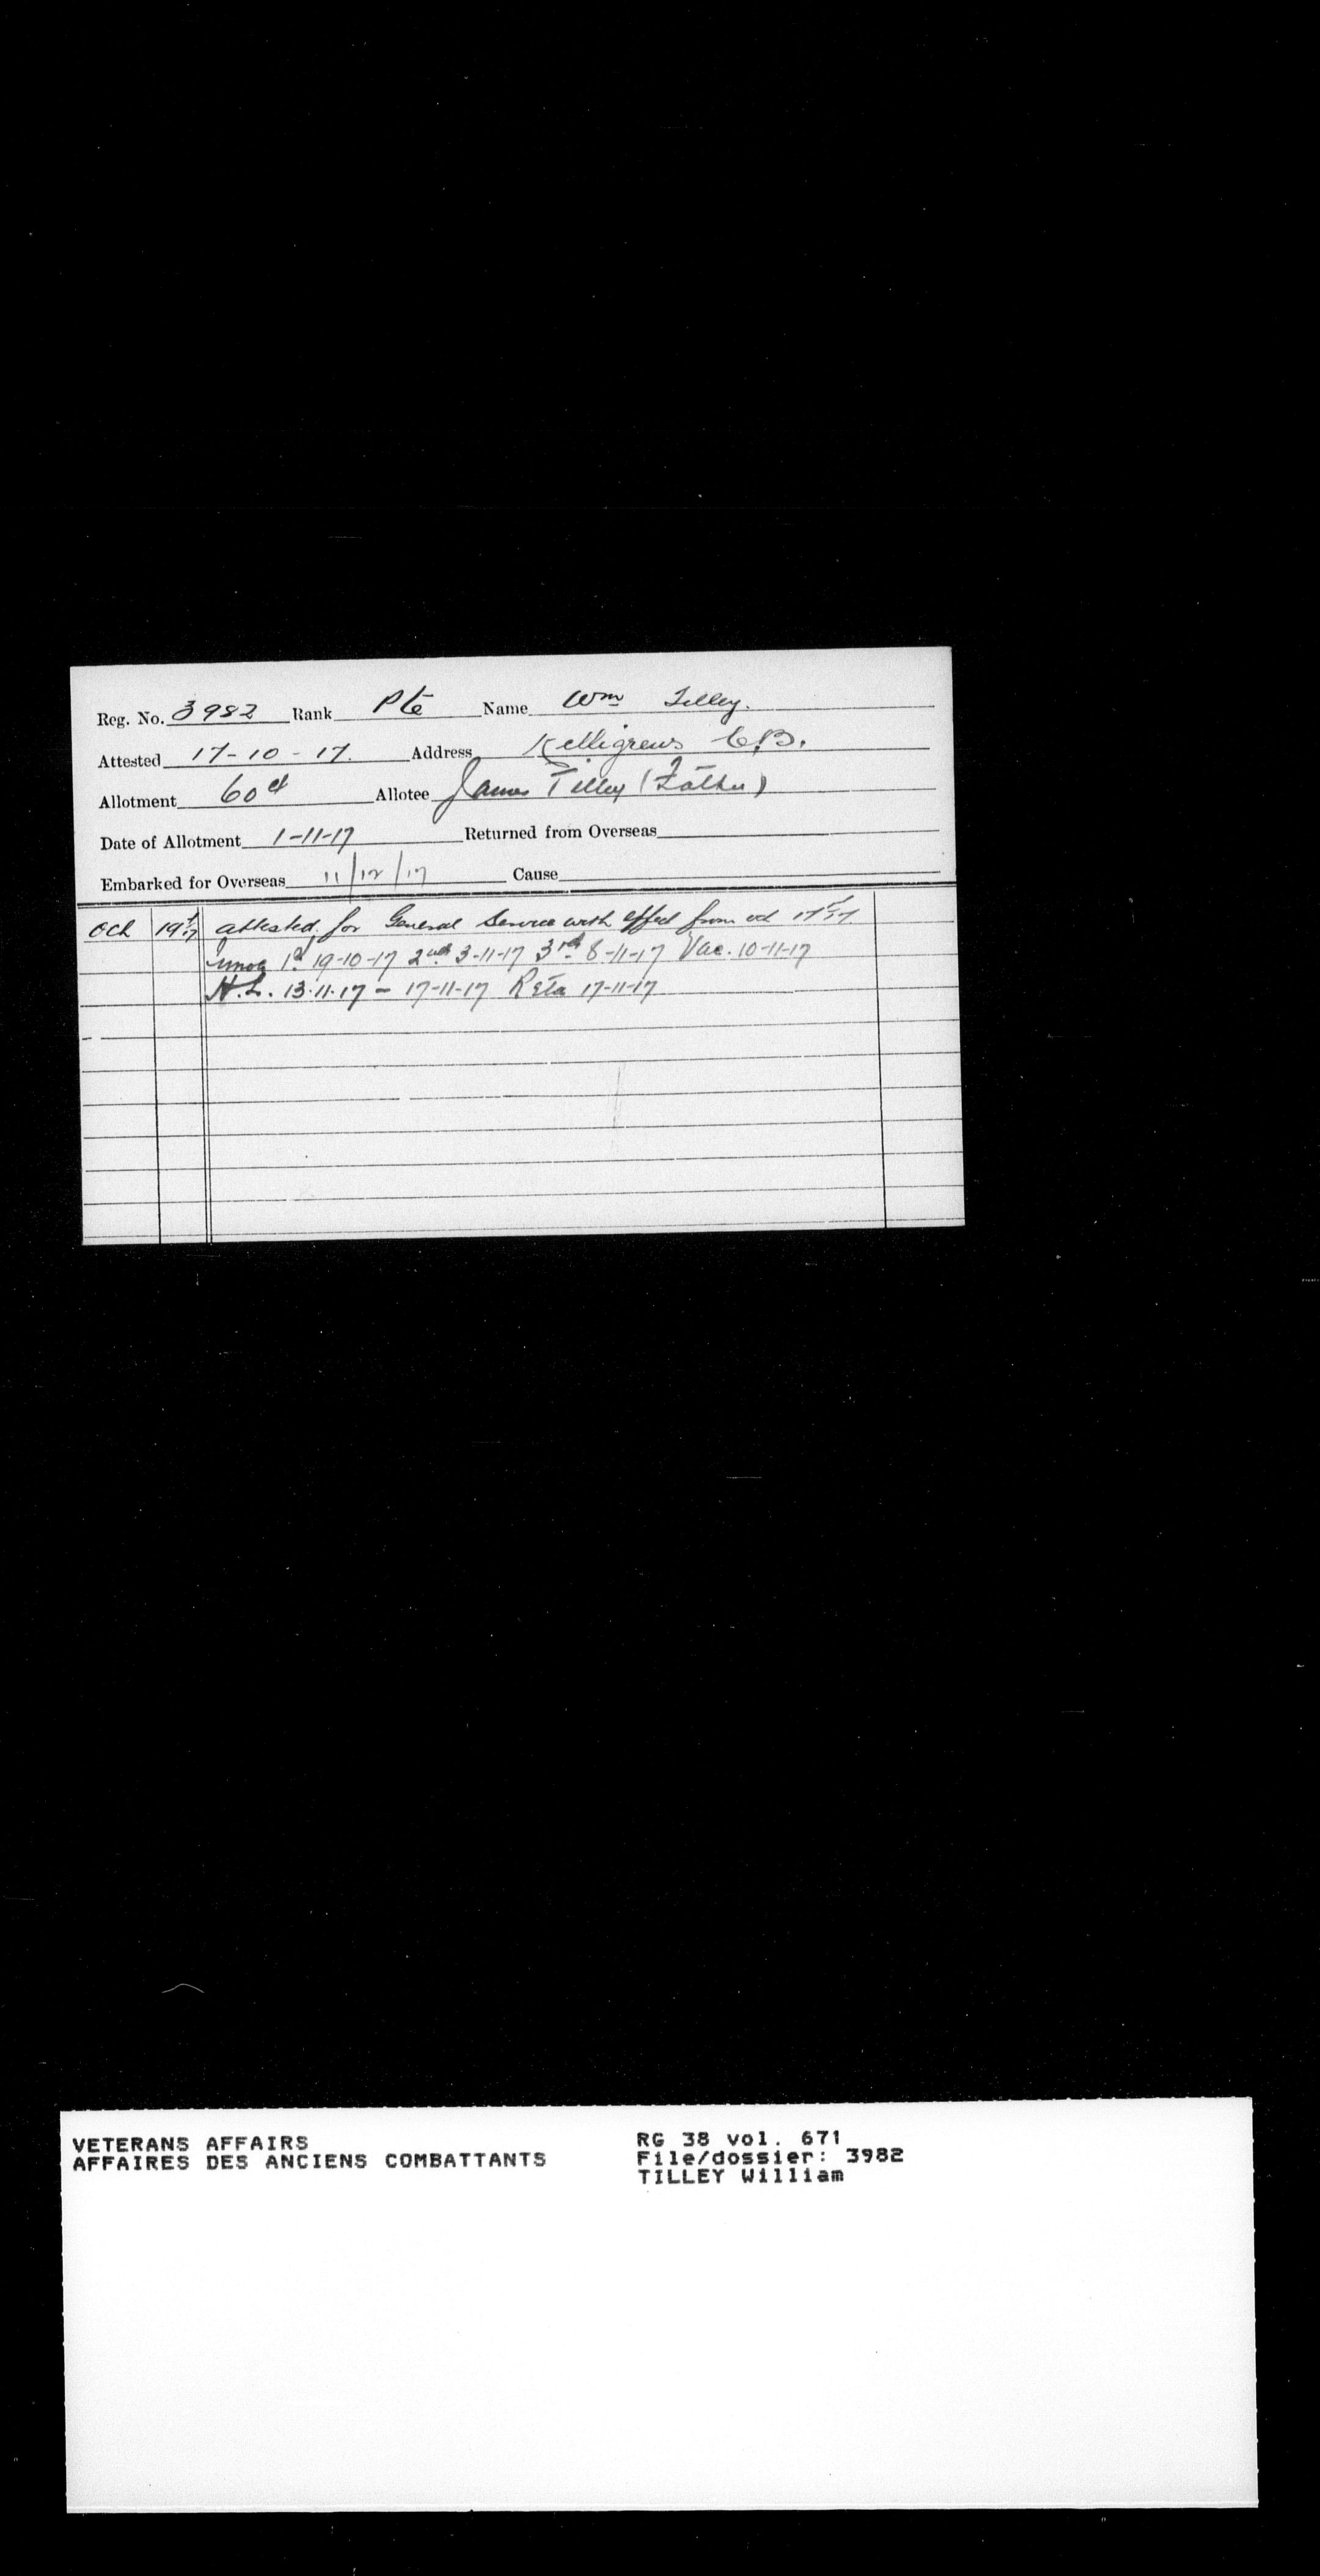 Reg. No. 3982 Rank Pte Name Wm Tilley.
Attested 17-10-17. Address Kelligrews C.B.
Allotment 60¢ Allotee James Tilley (Father)
Date of Allotment 1-11-17 Returned from Overseas
Embarked for Overseas 11/12/17 Cause
Oct 19/17 attested for General Service with effect from oct 17/17
Innoc 1st 19-10-17 2nd 3-11-17 3rd 8-11-17 Vac. 10-11-17
H.L. 13.11.17 - 17-11-17 17-11-17
VETERANS AFFAIRS RG 38 vol. 671
AFFAIRES DES ANCIENS COMBATTANTS File/dossier: 3982
TILLEY William